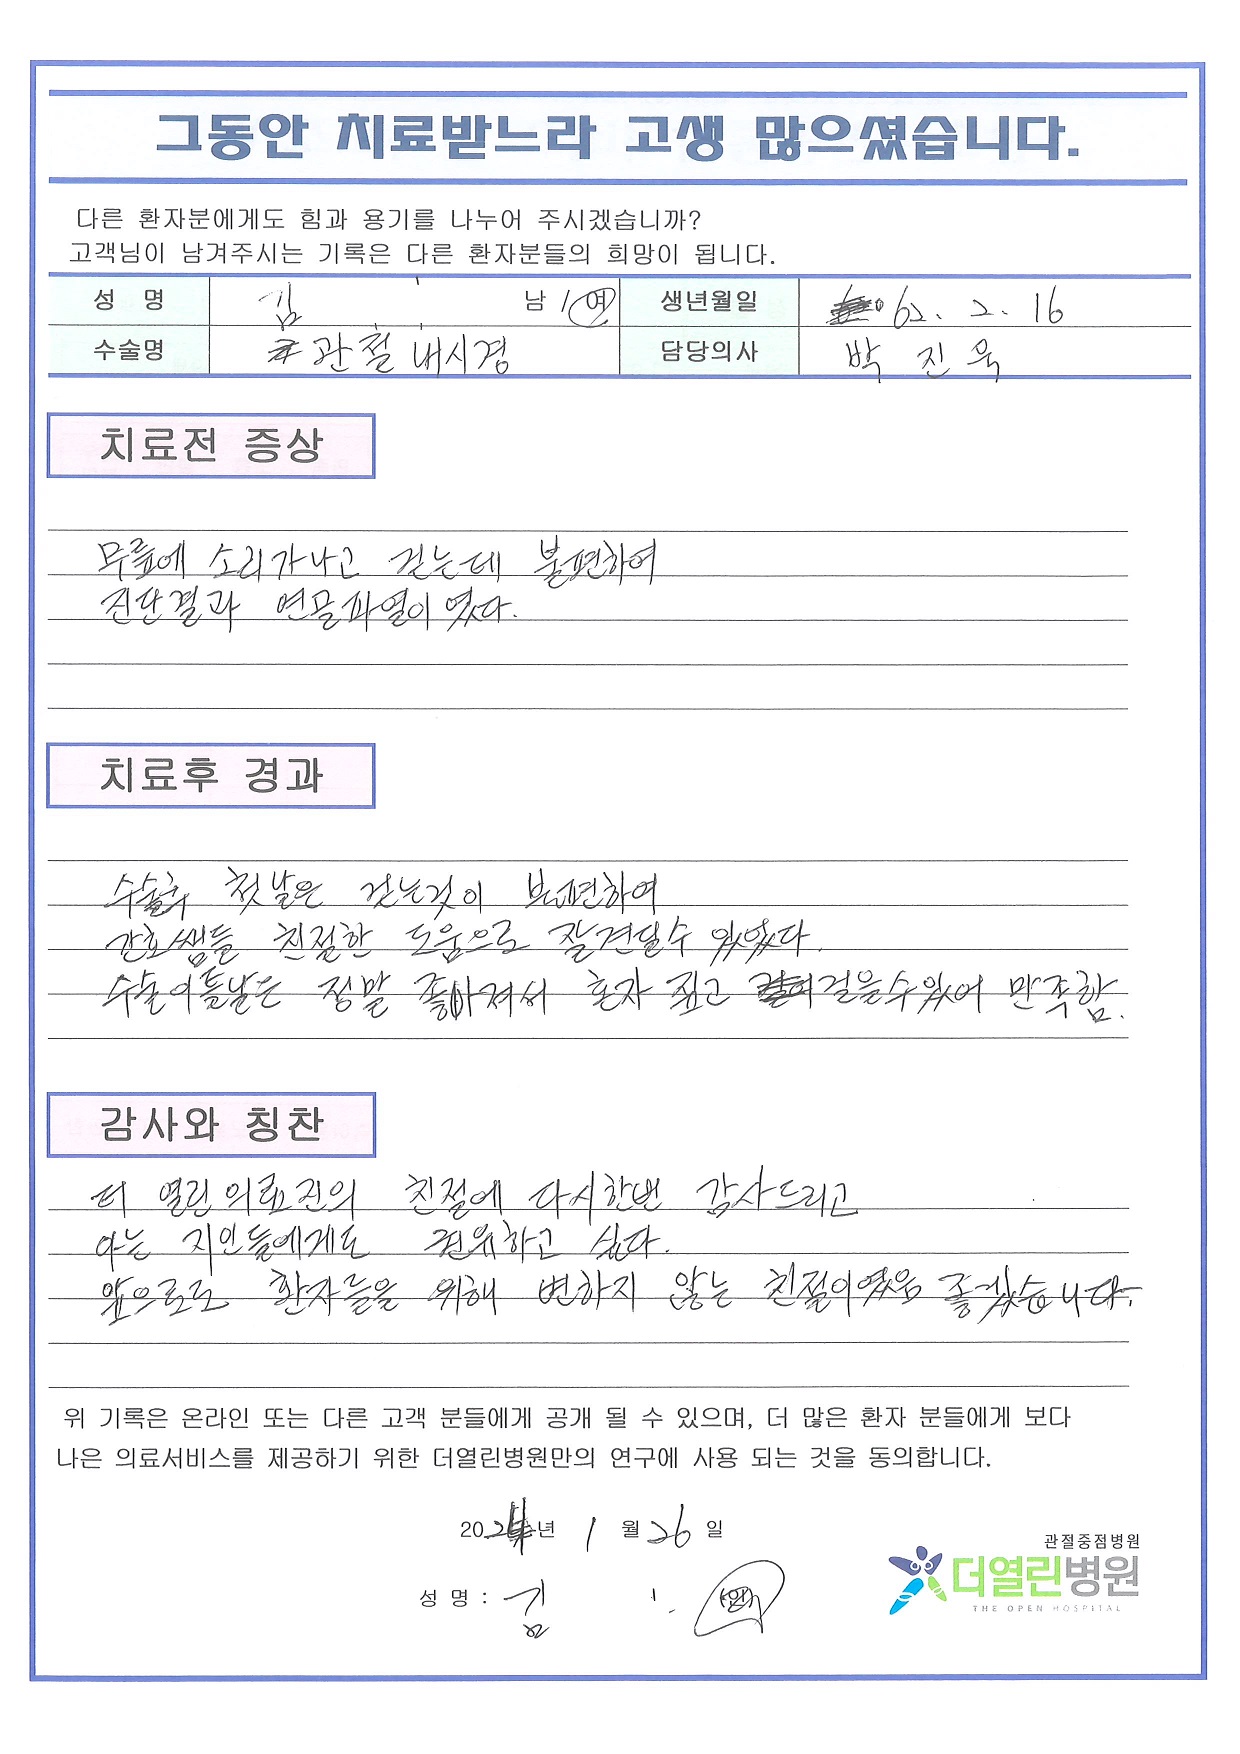 그동안 치료받느라 고생 많으셨습니다.
다른 환자분에게도 힘과 용기를 나누어 주시겠습니까?
고객님이 남겨주시는 기록은 다른 환자분들의 희망이 됩니다.
성 명 김 남 / 여 생년월일 62. 2. 16
수술명 관절 내시경 담당의사 박 진 욱
치료전 증상
무릎에 소리가나고 걷는데 불편하여
진단결과 연골파열이 였다.
치료후 경과
수술후 첫날은 걷는것이 불편하여
간호쌤들 친절한 도움으로 잘 견딜수 있었다.
수술이틀날은 정말 좋아져서 혼자 짚고 걸을수 있어 만족함.
감사와 칭찬
더 열린 의료진의 친절에 다시한번 감사드리고
아는 지인들에게도 권유하고 싶다.
앞으로도 환자들을 위해 변하지 않는 친절이였음 좋겠습니다.
위 기록은 온라인 또는 다른 고객 분들에게 공개 될 수 있으며, 더 많은 환자 분들에게 보다
나은 의료서비스를 제공하기 위한 더열린병원만의 연구에 사용 되는 것을 동의합니다.
2024년 1 월 26 일
관절중점병원
더열린병원
THE OPEN HOSPITAL
성 명 : 김 (인)